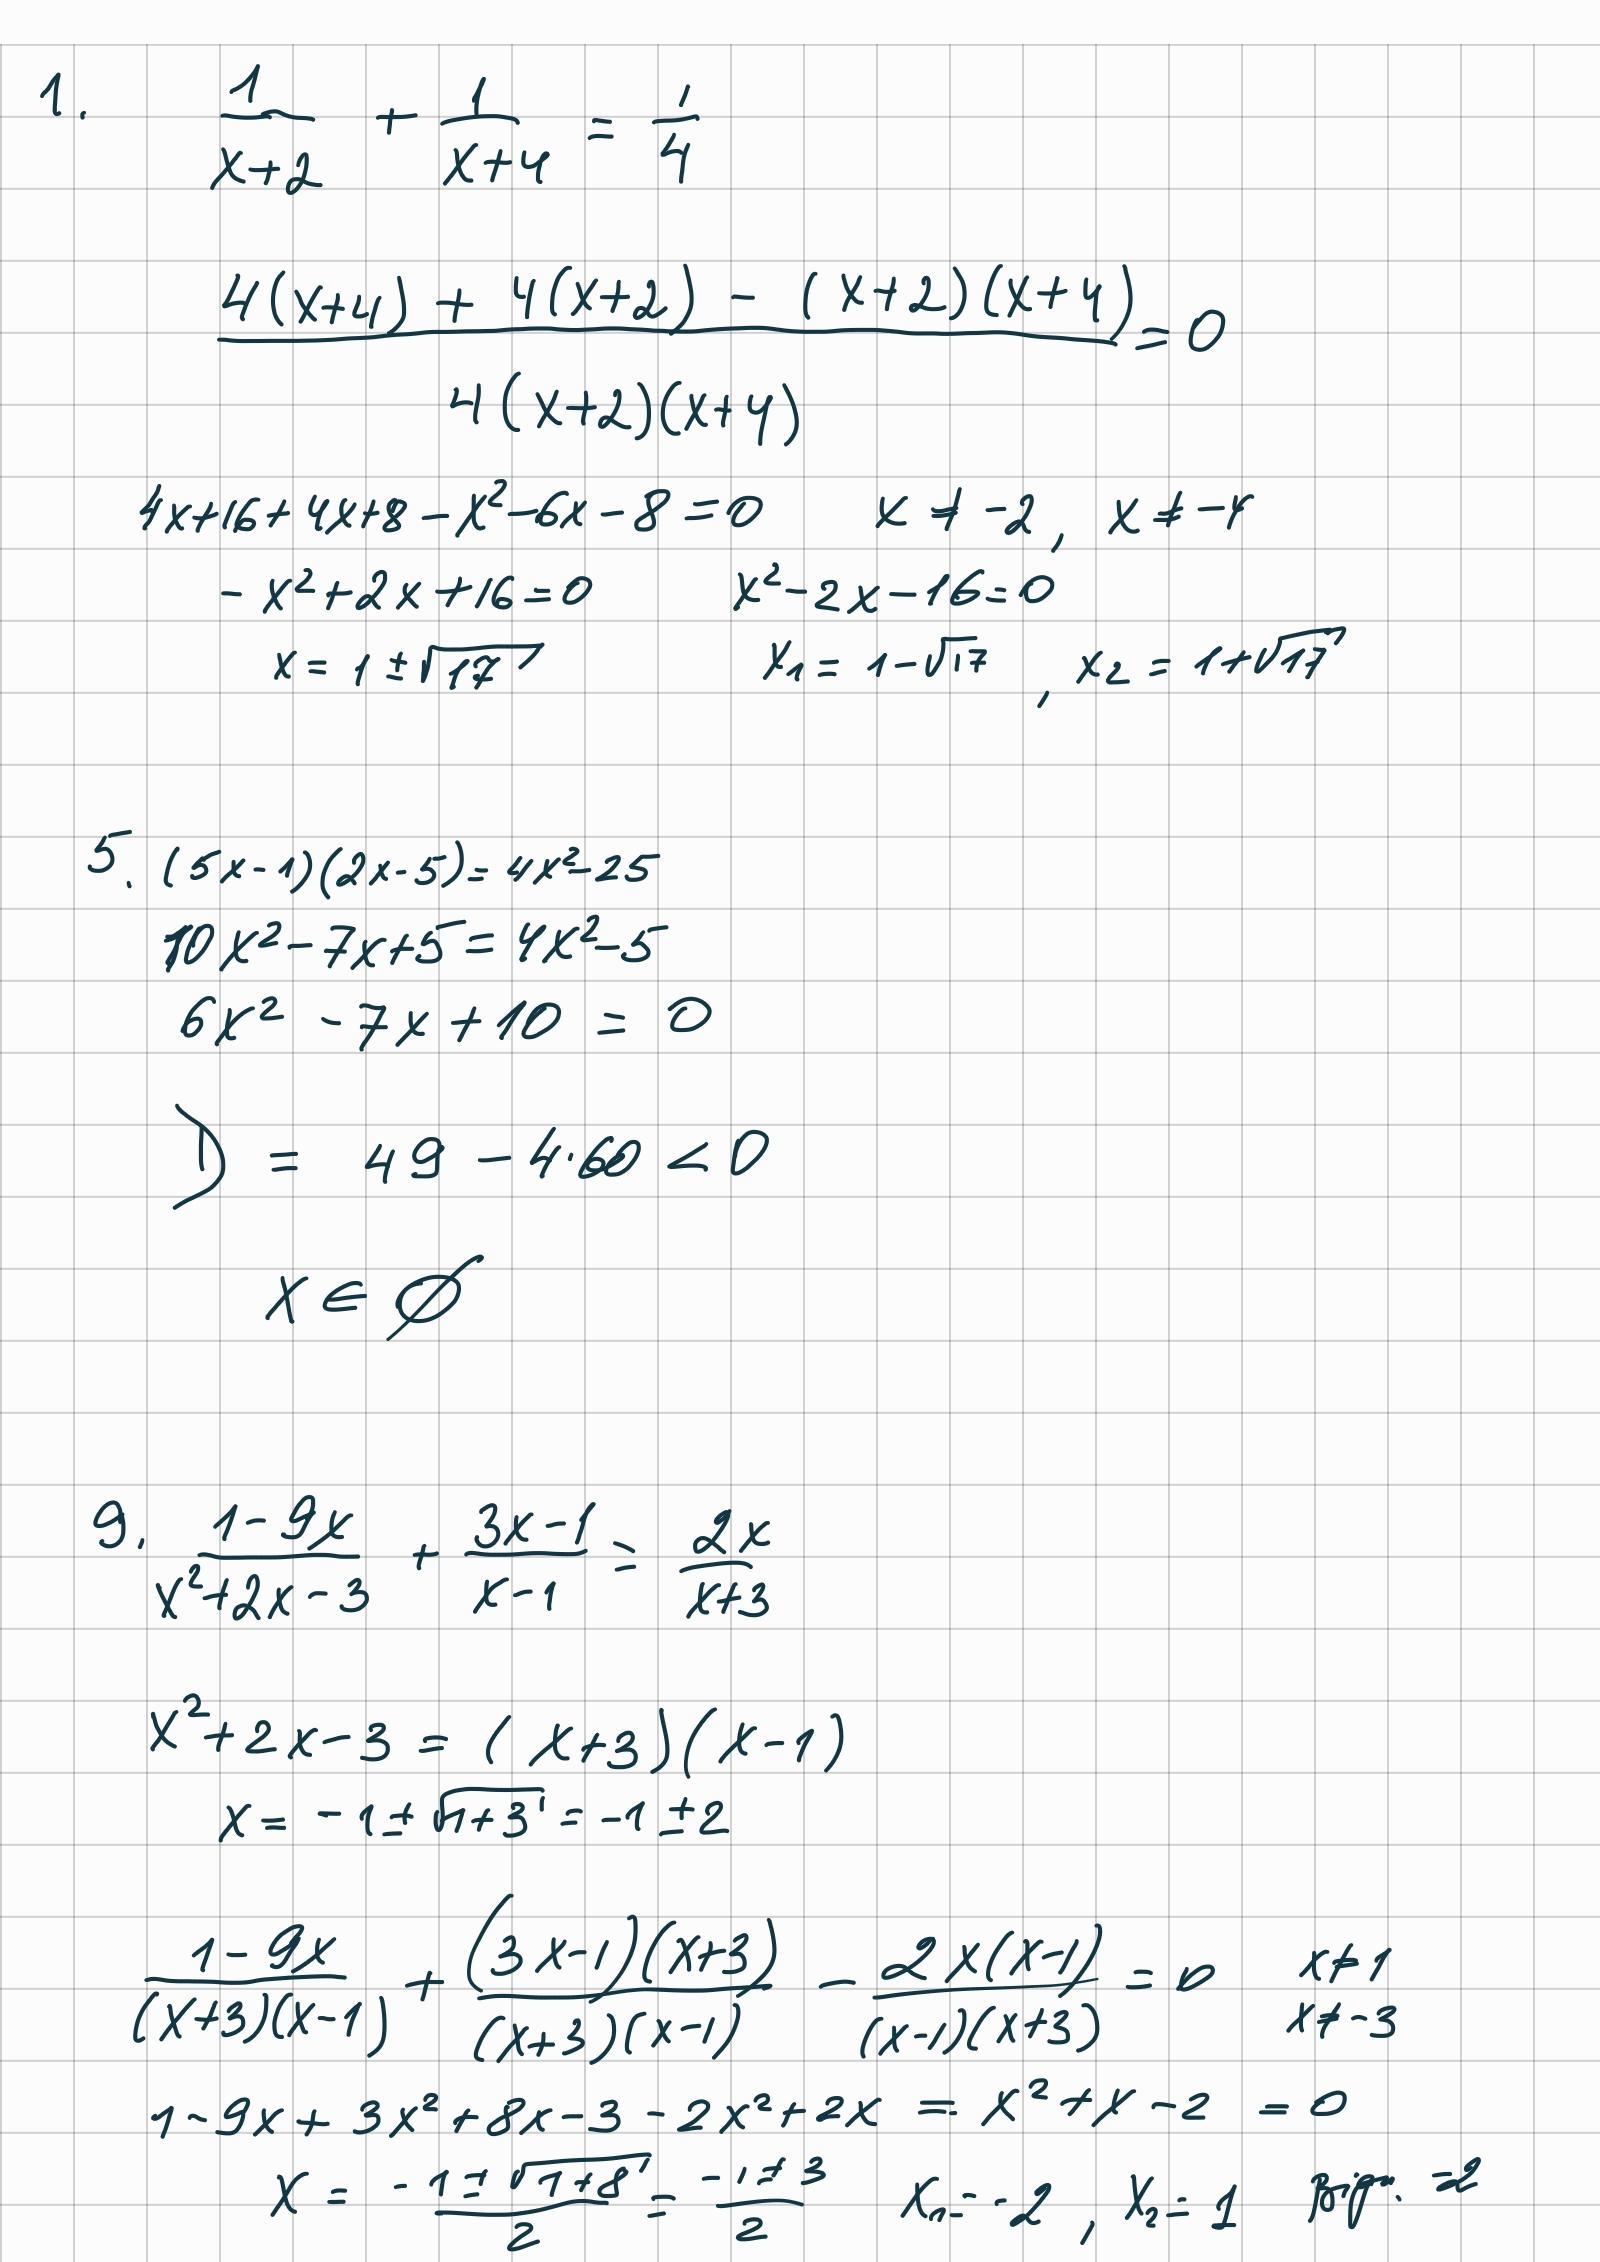 1. 1/(x+2) + 1/(x+4) = 1/4
(4(x+4) + 4(x+2) - (x+2)(x+4))/(4(x+2)(x+4)) = 0
4x+16+4x+8-x²-6x-8=0 x ≠ -2, x ≠ -4
-x²+2x+16=0 x²-2x-16=0
x = 1±√17 x₁ = 1-√17, x₂ = 1+√17
5. (5x-1)(2x-5) = 4x²-25
10x²-7x+5 = 4x²-5
6x² -7x+10 = 0
D = 49 - 4·60 < 0
x ∈ ∅
9. (1-9x)/(x²+2x-3) + (3x-1)/(x-1) = 2x/(x+3)
x²+2x-3 = (x+3)(x-1)
x = -1±√(1+3) = -1±2
(1-9x)/((x+3)(x-1)) + ((3x-1)(x+3))/((x+3)(x-1)) - (2x(x-1))/((x-1)(x+3)) = 0 x≠1 x≠-3
1-9x+3x²+8x-3-2x²+2x = x²+x-2 = 0
x = (-1±√(1+8))/2 = (-1±3)/2 x₁=-2, x₂=1 Від. -2